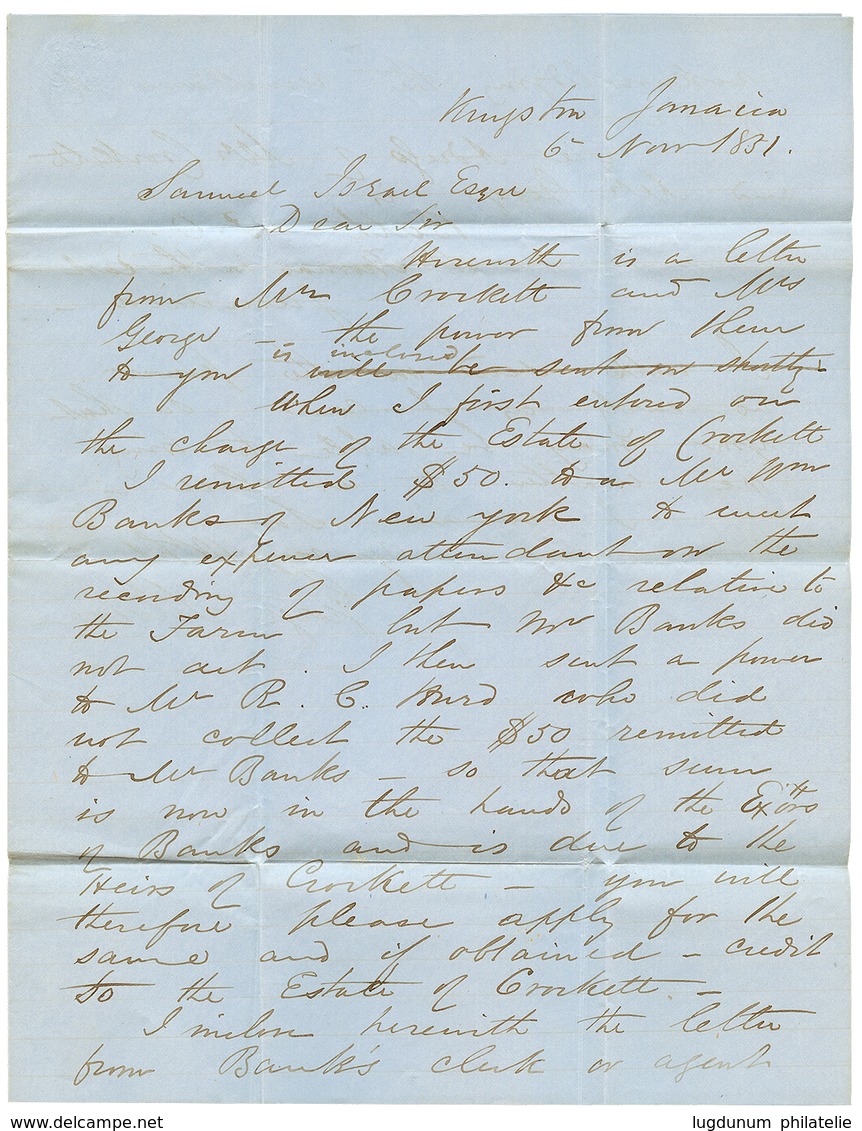 Kingston Jamaica
6 Novr 1851.
Samuel Israel Esqre
Dear Sir
Herewith is a letter
from Mrs Crockett and Mrs
George – the power from them
is inclosed
to you will be sent on shortly
When I first entered on
the charge of the Estate of Crockett
I remitted $50. to a Mr Wm
Banks of New york to meet
any expences attendant on the
recording of papers &c relative to
the Farm but Mr Banks did
not act. I then sent a power
to Mr R. C. Hurd who did
not collect the $50 remitted
to Mr Banks – so that sum
is now in the hands of the Exors
of Banks and is due to the
Heirs of Crockett – you will
therefore please apply for the
same and if obtained – credit
to the Estate of Crockett –
I inclose herewith the letter
from Bank's clerk or agent
www.delcampe.net
lugdunum philatelie